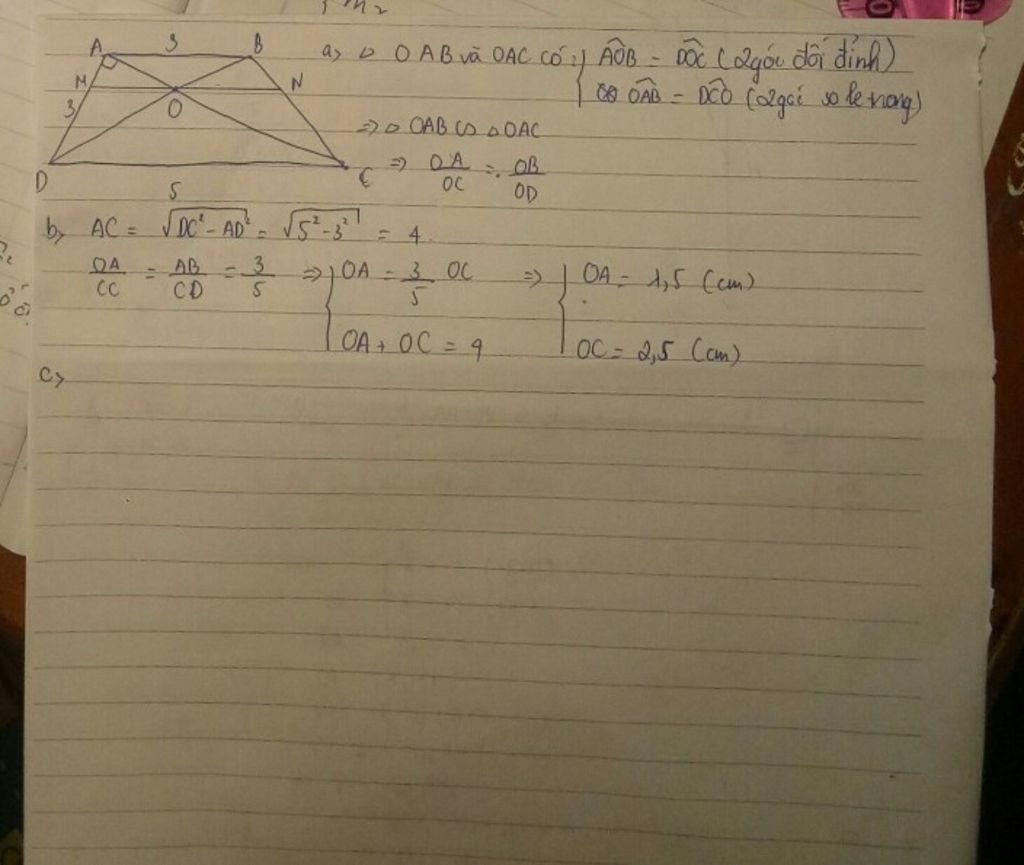 A 3 B
M N
3 O
D 5 C
a) △ OAB và OAC có: AOB = DOC (2góc đối đỉnh)
OAB = DCO (2góc so le trong)
=> △ OAB ∽ △ OAC
=> OA/OC = OB/OD
b) AC = √DC² - AD² = √5² - 3² = 4
OA/CC = AB/CD = 3/5 => { OA = 3/5 OC => { OA = 1,5 (cm)
OA + OC = 4 OC = 2,5 (cm)
c)